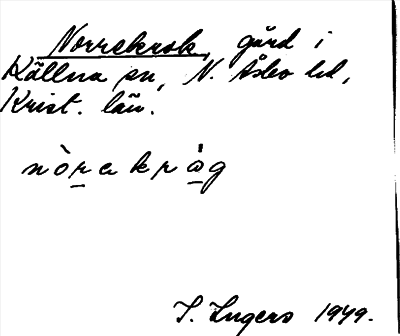 Norrekrok, gård i
Källna sn, N. Åsbo hd,
Krist. län.
nòrekråg
I. Ingers 1949.